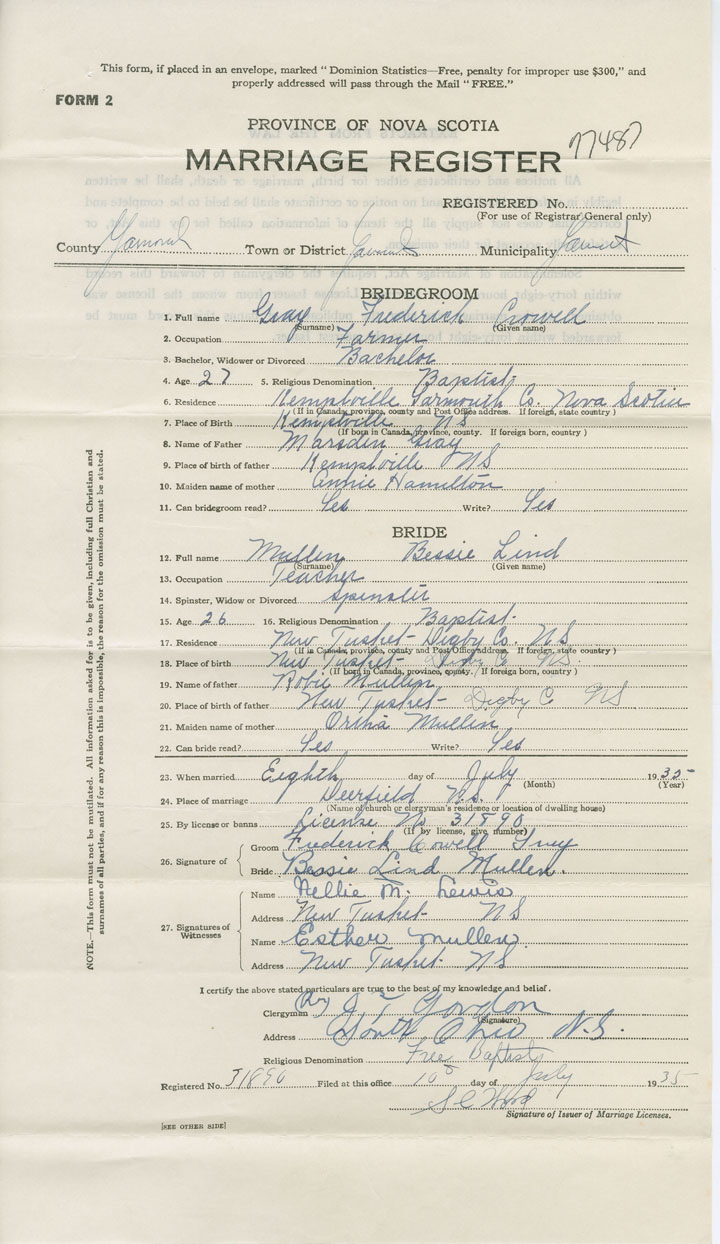 This form, if placed in an envelope, marked "Dominion Statistics—Free, penalty for improper use $300," and
properly addressed will pass through the Mail "FREE."
FORM 2
PROVINCE OF NOVA SCOTIA
MARRIAGE REGISTER 77487
REGISTERED No.
(For use of Registrar General only)
County Yarmouth Town or District Yarmouth Municipality Yarmouth
BRIDEGROOM
1. Full name Gray Frederick Crowell
(Surname) (Given name)
2. Occupation Farmer
3. Bachelor, Widower or Divorced Bachelor
4. Age 27 5. Religious Denomination Baptist
6. Residence Kemptville Yarmouth Co. Nova Scotia
(If in Canada, province, county and Post Office address. If foreign, state country)
7. Place of Birth Kemptville NS
(If born in Canada, province, county. If foreign born, country)
8. Name of Father Marsden Gray
9. Place of birth of father Kemptville NS
10. Maiden name of mother Annie Hamilton
11. Can bridegroom read? Yes Write? Yes
BRIDE
12. Full name Mullen Bessie Lind
(Surname) (Given name)
13. Occupation Teacher
14. Spinster, Widow or Divorced Spinster
15. Age 26 16. Religious Denomination Baptist.
17. Residence New Tusket - Digby Co. N.S
(If in Canada, province, county and Post Office address. If foreign, state country)
18. Place of birth New Tusket - Digby Co NS.
(If born in Canada, province, county. If foreign born, country)
19. Name of father Robie Mullen
20. Place of birth of father New Tusket - Digby C NS
21. Maiden name of mother Mullen
22. Can bride read? Yes Write? Yes
23. When married Eighth day of July 1935
(Month) (Year)
24. Place of marriage Deerfield N.S.
(Name of church or clergyman's residence or location of dwelling house)
25. By license or banns License No 31890
(If by license, give number)
26. Signature of Groom Frederick Crowell Gray
Bride Bessie Lind Mullen.
27. Signatures of Witnesses Name Nellie M. Lewis
Address New Tusket - NS
Name Esther Mullen.
Address New Tusket - NS
NOTE.—This form must not be mutilated. All information asked for is to be given, including full Christian and
surnames of all parties, and if for any reason this is impossible, the reason for the omission must be stated.
I certify the above stated particulars are true to the best of my knowledge and belief.
Clergyman Gordon
(Signature)
Address South Ohio N.S.
Religious Denomination Free Baptist
Registered No. 31890 Filed at this office 10th day of July 1935
Signature of Issuer of Marriage Licenses.
[SEE OTHER SIDE]